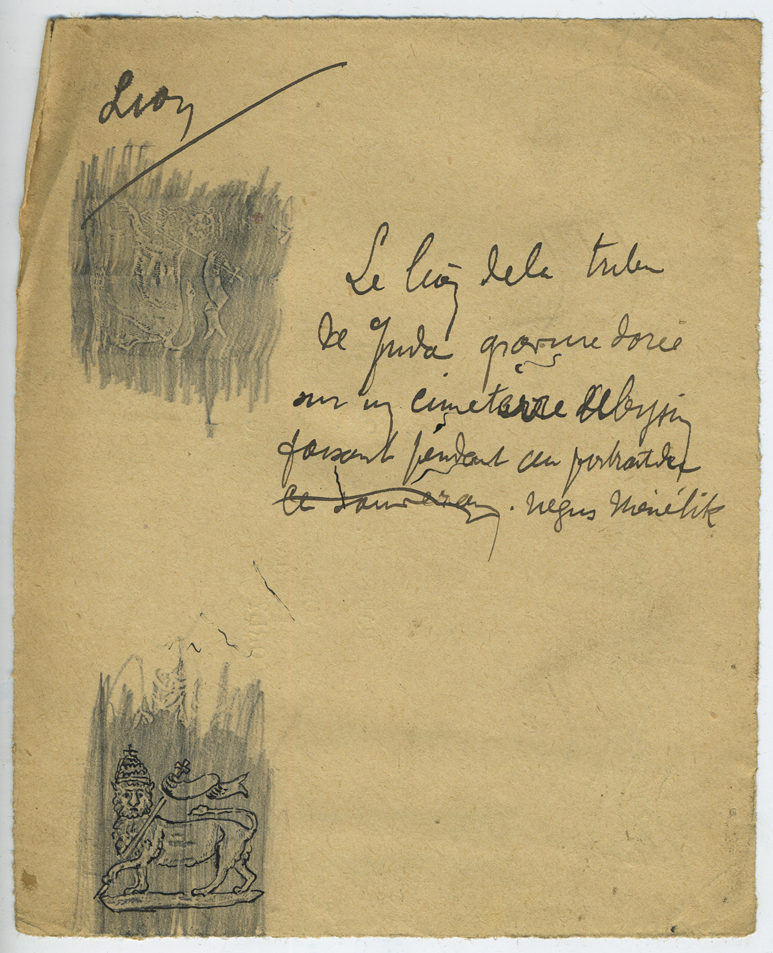 Lion
Le lion de la tribu
de Juda gravure dorée
sur un cimeterre Abyssin
faisant pendant au portrait du
le souverain . négus Ménélik